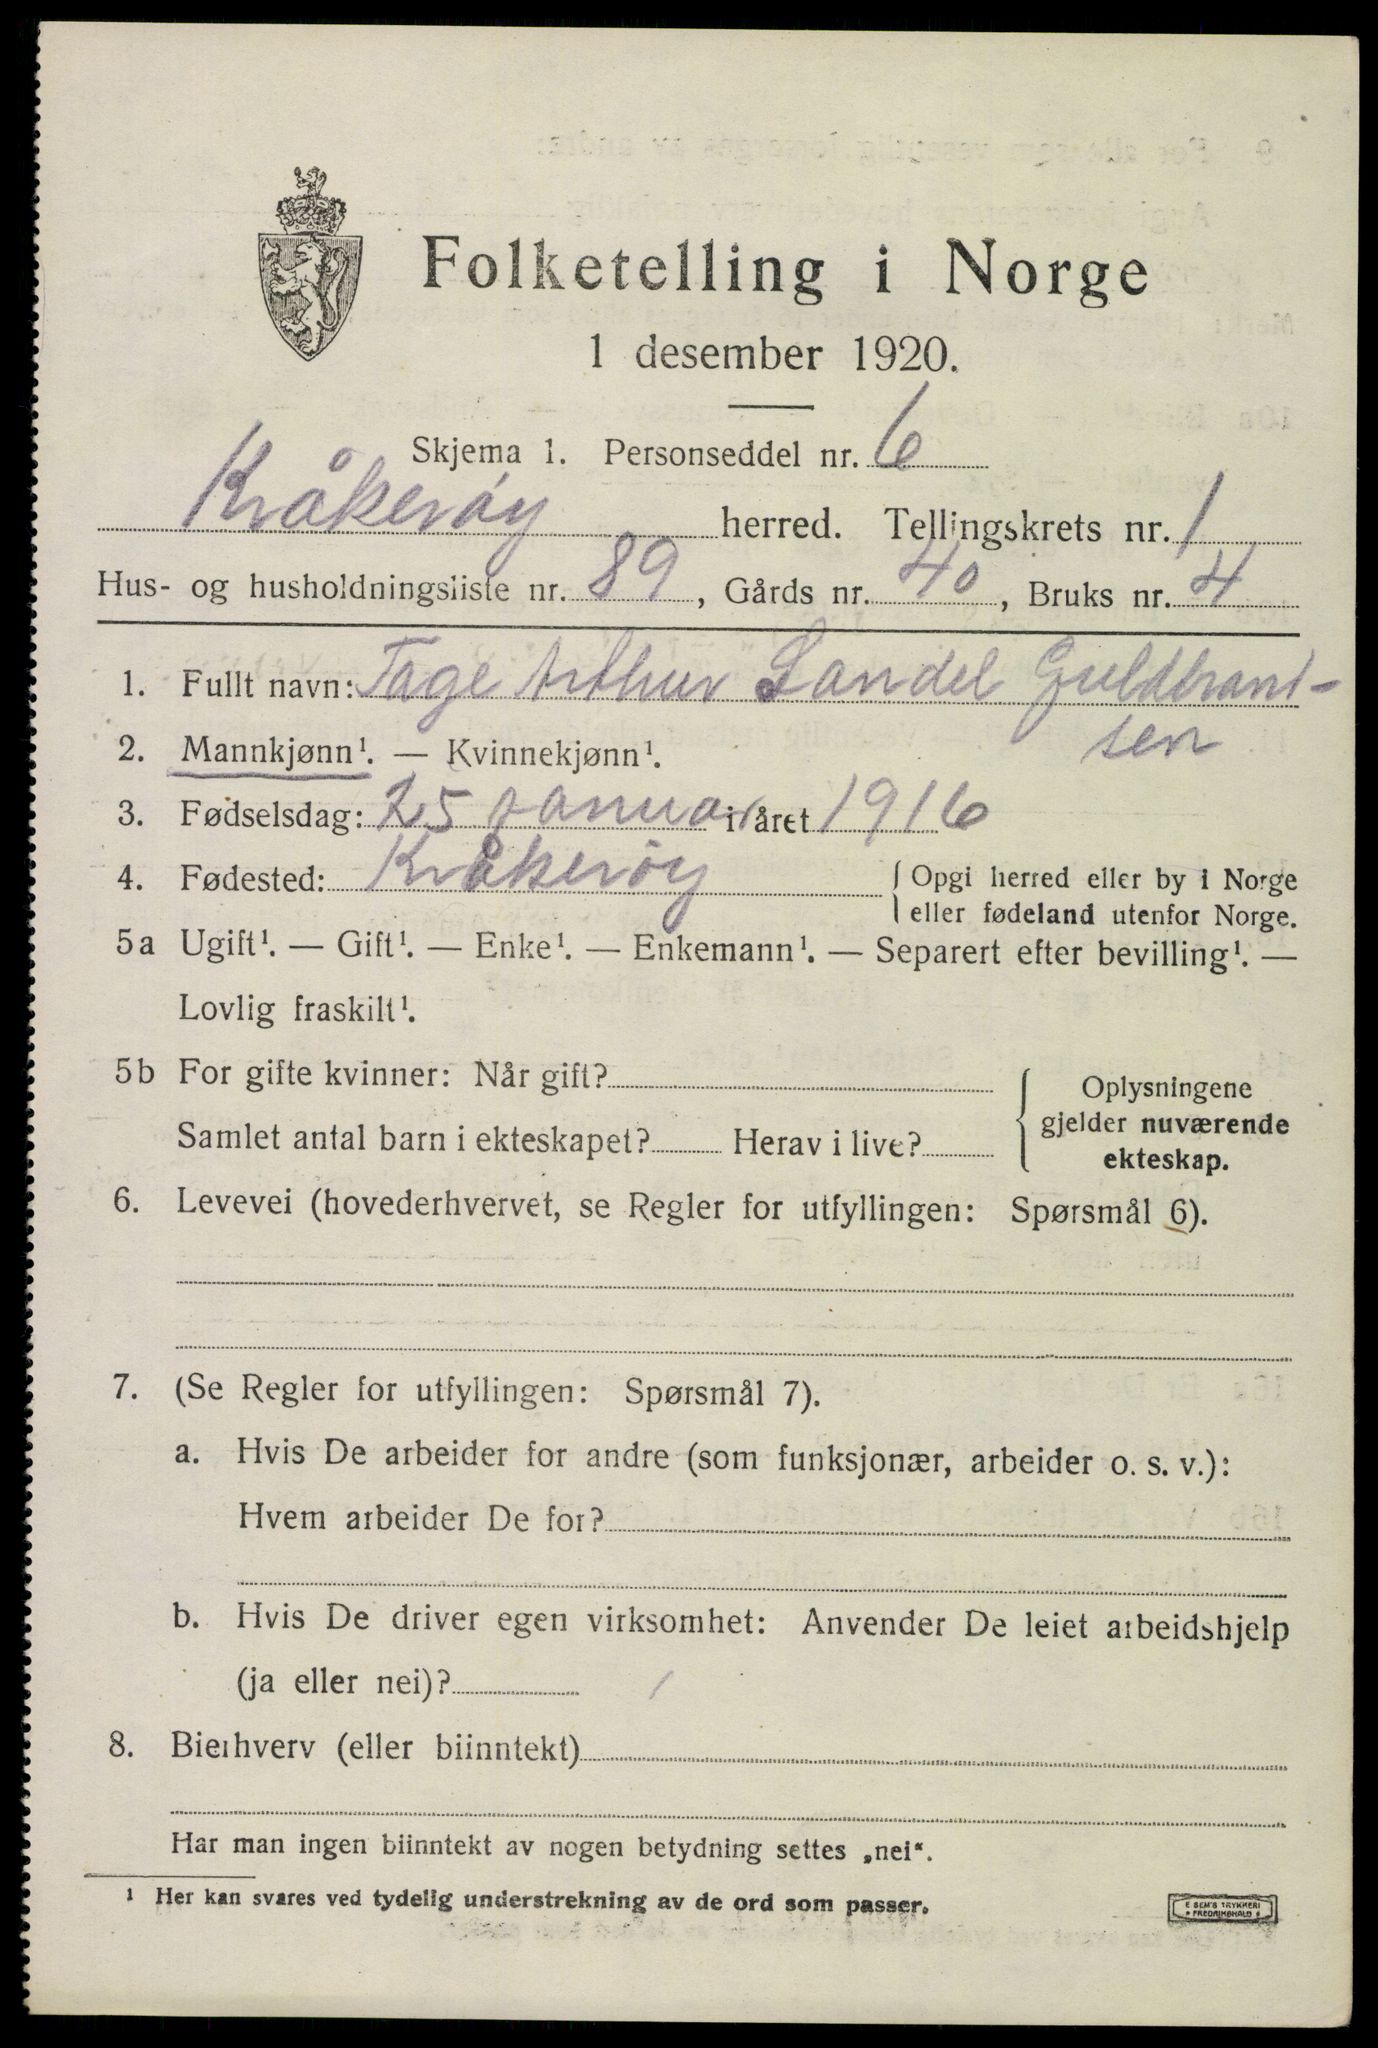 Folketelling i Norge
1 desember 1920.
Skjema 1. Personseddel nr. 6
Kråkerøy herred. Tellingskrets nr. 1
Hus- og husholdningsliste nr. 89, Gårds nr. 40, Bruks nr. 4
1. Fullt navn: Tage Arthur Sandel Guldbrand-
sen
2. Mannkjønn¹. — Kvinnekjønn¹.
3. Fødselsdag: 25 januar i året 1916
4. Fødested: Kråkerøy { Opgi herred eller by i Norge
eller fødeland utenfor Norge.
5a Ugift¹. — Gift¹. — Enke¹. — Enkemann¹. — Separert efter bevilling¹. —
Lovlig fraskilt¹.
5b For gifte kvinner: Når gift?
Samlet antal barn i ekteskapet? Herav i live?
Oplysningene
gjelder nuværende
ekteskap.
6. Levevei (hovederhvervet, se Regler for utfyllingen: Spørsmål 6).
7. (Se Regler for utfyllingen: Spørsmål 7).
a. Hvis De arbeider for andre (som funksjonær, arbeider o. s. v.):
Hvem arbeider De for?
b. Hvis De driver egen virksomhet: Anvender De leiet arbeidshjelp
(ja eller nei)?
8. Bierhverv (eller biinntekt)
Har man ingen biinntekt av nogen betydning settes „nei“.
1 Her kan svares ved tydelig understrekning av de ord som passer.
E SEM'S TRYKKERI
FREDRIKSHALD